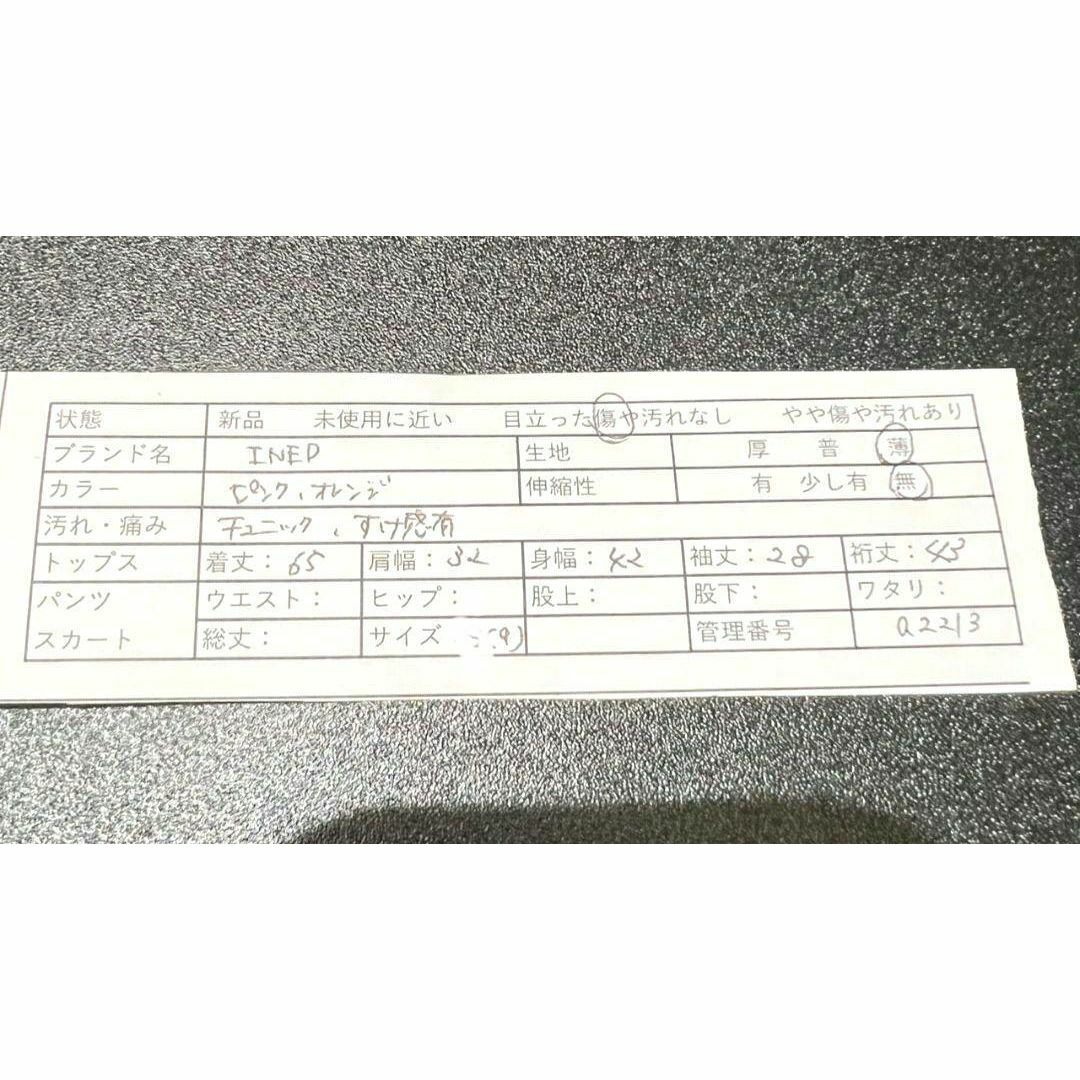 状態 新品 未使用に近い 目立った傷や汚れなし やや傷や汚れあり
ブランド名 INED 生地 厚 普 薄
カラー ピンク、オレンジ 伸縮性 有 少し有 無
汚れ・痛み チュニック、すけ感有
トップス 着丈:65 肩幅:32 身幅:42 袖丈:28 裄丈:43
パンツ ウエスト: ヒップ: 股上: 股下: ワタリ:
スカート 総丈: サイズ (9) 管理番号 a2213